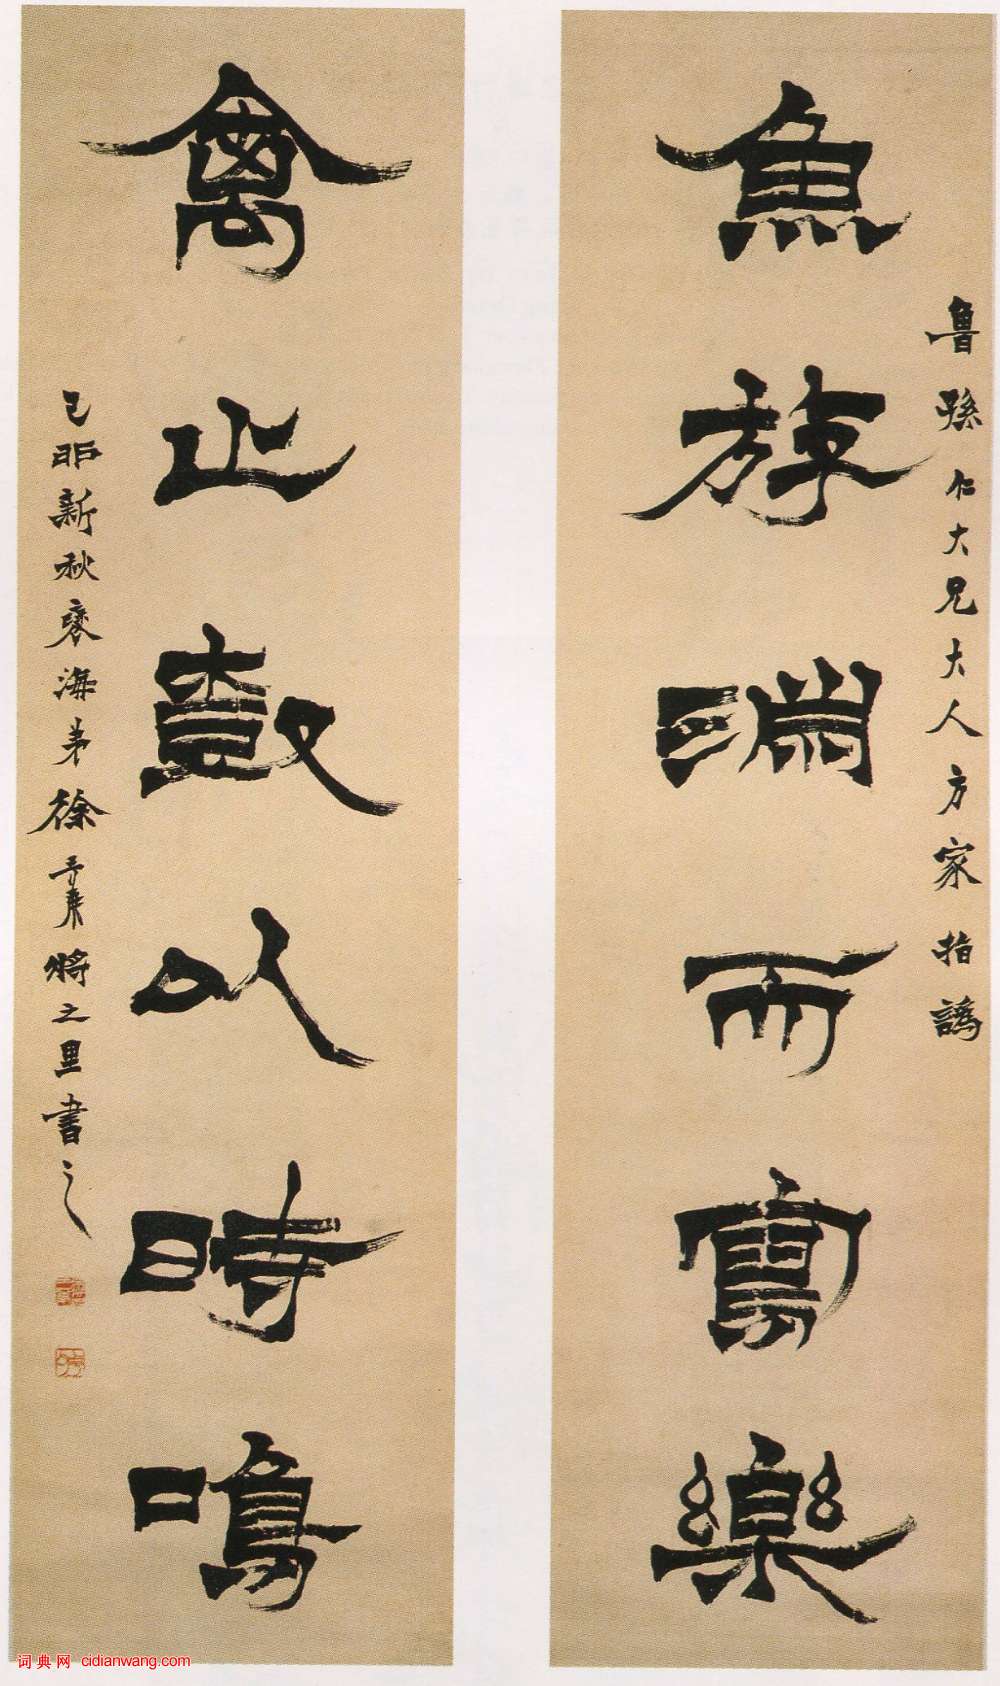 魯孫仁大兄大人方家指譌
魚斿淵而寫樂
禽止樹以時鳴
己卯新秋褎海弟徐三庚將之里書之
词典网 cidianwang.com